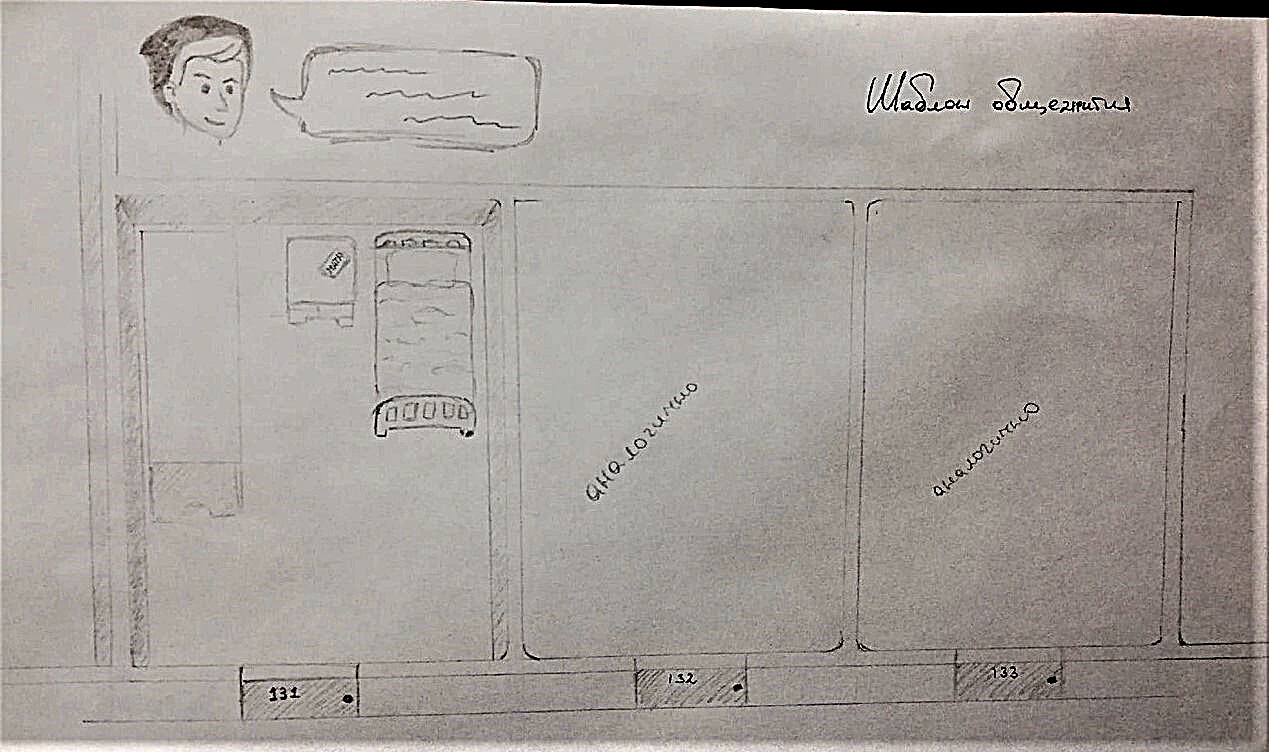 Шаблон общежития
аналогично
аналогично
131
132
133